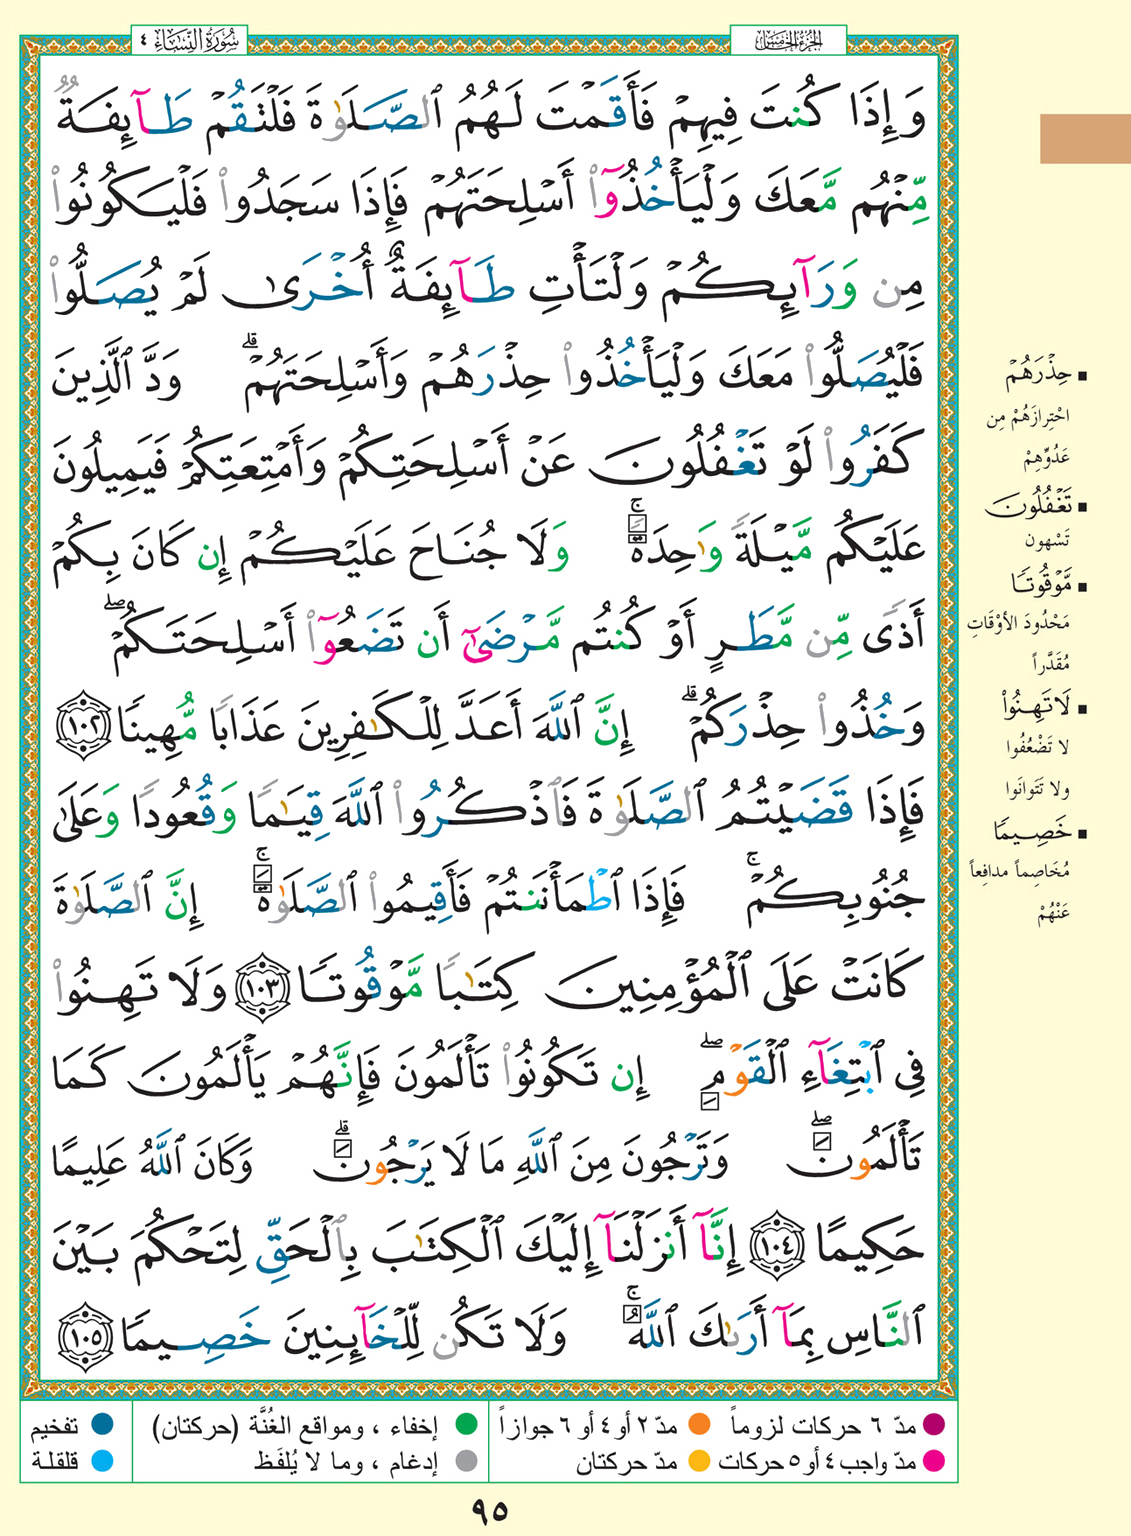 سُورَةُ النِّسَاء ٤
الجُزْءُ الخَامِسُ
وَإِذَا كُنتَ فِيهِمْ فَأَقَمْتَ لَهُمُ ٱلصَّلَوٰةَ فَلْتَقُمْ طَآئِفَةٌ
مِّنْهُم مَّعَكَ وَلْيَأْخُذُوٓا۟ أَسْلِحَتَهُمْ فَإِذَا سَجَدُوا۟ فَلْيَكُونُوا۟
مِن وَرَآئِكُمْ وَلْتَأْتِ طَآئِفَةٌ أُخْرَىٰ لَمْ يُصَلُّوا۟
فَلْيُصَلُّوا۟ مَعَكَ وَلْيَأْخُذُوا۟ حِذْرَهُمْ وَأَسْلِحَتَهُمْ ۗ وَدَّ ٱلَّذِينَ
كَفَرُوا۟ لَوْ تَغْفُلُونَ عَنْ أَسْلِحَتِكُمْ وَأَمْتِعَتِكُمْ فَيَمِيلُونَ
عَلَيْكُم مَّيْلَةً وَٰحِدَةً ۚ وَلَا جُنَاحَ عَلَيْكُمْ إِن كَانَ بِكُمْ
أَذًى مِّن مَّطَرٍ أَوْ كُنتُم مَّرْضَىٰٓ أَن تَضَعُوٓا۟ أَسْلِحَتَكُمْ ۖ
وَخُذُوا۟ حِذْرَكُمْ ۗ إِنَّ ٱللَّهَ أَعَدَّ لِلْكَٰفِرِينَ عَذَابًا مُّهِينًا ١٠٢
فَإِذَا قَضَيْتُمُ ٱلصَّلَوٰةَ فَٱذْكُرُوا۟ ٱللَّهَ قِيَٰمًا وَقُعُودًا وَعَلَىٰ
جُنُوبِكُمْ ۚ فَإِذَا ٱطْمَأْنَنتُمْ فَأَقِيمُوا۟ ٱلصَّلَوٰةَ ۚ إِنَّ ٱلصَّلَوٰةَ
كَانَتْ عَلَى ٱلْمُؤْمِنِينَ كِتَٰبًا مَّوْقُوتًا ١٠٣ وَلَا تَهِنُوا۟
فِى ٱبْتِغَآءِ ٱلْقَوْمِ ۖ إِن تَكُونُوا۟ تَأْلَمُونَ فَإِنَّهُمْ يَأْلَمُونَ كَمَا
تَأْلَمُونَ ۖ وَتَرْجُونَ مِنَ ٱللَّهِ مَا لَا يَرْجُونَ ۗ وَكَانَ ٱللَّهُ عَلِيمًا
حَكِيمًا ١٠٤ إِنَّآ أَنزَلْنَآ إِلَيْكَ ٱلْكِتَٰبَ بِٱلْحَقِّ لِتَحْكُمَ بَيْنَ
ٱلنَّاسِ بِمَآ أَرَىٰكَ ٱللَّهُ ۚ وَلَا تَكُن لِّلْخَآئِنِينَ خَصِيمًا ١٠٥
حِذْرَهُمْ
احْتِرازَهُمْ مِن
عَدُوِّهِمْ
تَغْفُلُونَ
تَسْهون
مَّوْقُوتًا
مَحْدُودَ الأوْقَاتِ
مُقَدَّراً
لَا تَهِنُوا۟
لا تَضْعُفُوا
ولا تَتَوانَوا
خَصِيمًا
مُخَاصِماً مدافِعاً
عَنْهُمْ
مدّ ٦ حركات لزوماً
مدّ ٢ أو ٤ أو ٦ جوازاً
إخفاء ، ومواقع الغُنَّة (حركتان)
تفخيم
مدّ واجب ٤ أو ٥ حركات
مدّ حركتان
إدغام ، وما لا يُلفَظ
قلقلة
٩٥